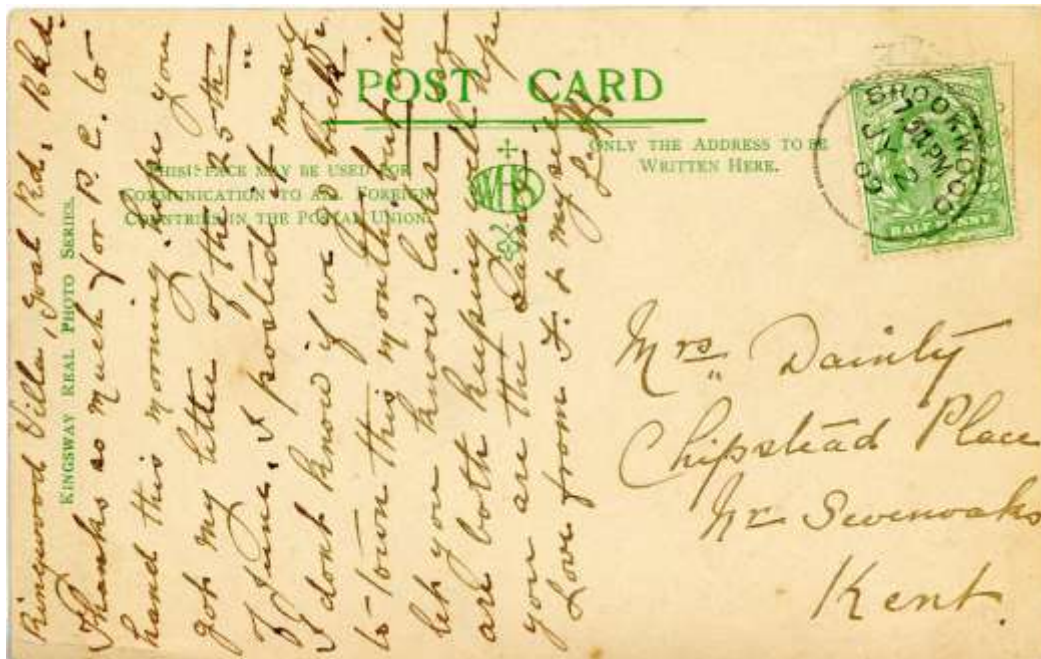 POST CARD
THIS FACE MAY BE USED FOR
COMMUNICATION TO ALL FOREIGN
COUNTRIES IN THE POSTAL UNION.
ONLY THE ADDRESS TO BE
WRITTEN HERE.
KINGSWAY REAL PHOTO SERIES.
WHS
BROOKWOOD
PM
JY 2
09
HALFPENNY
Ringwood Villa, Goal Rd, Bkd
Thanks so much for P.C. to
hand this morning. hope you
got my letter of the 25th
of June. I posted it myself
I dont know if we go back
to town this month, but will
let you know later. Hope
are both keeping well hope
you are the same
Love from F. & myself
Mrs Dainty
Chipstead Place
Nr Sevenoaks
Kent.